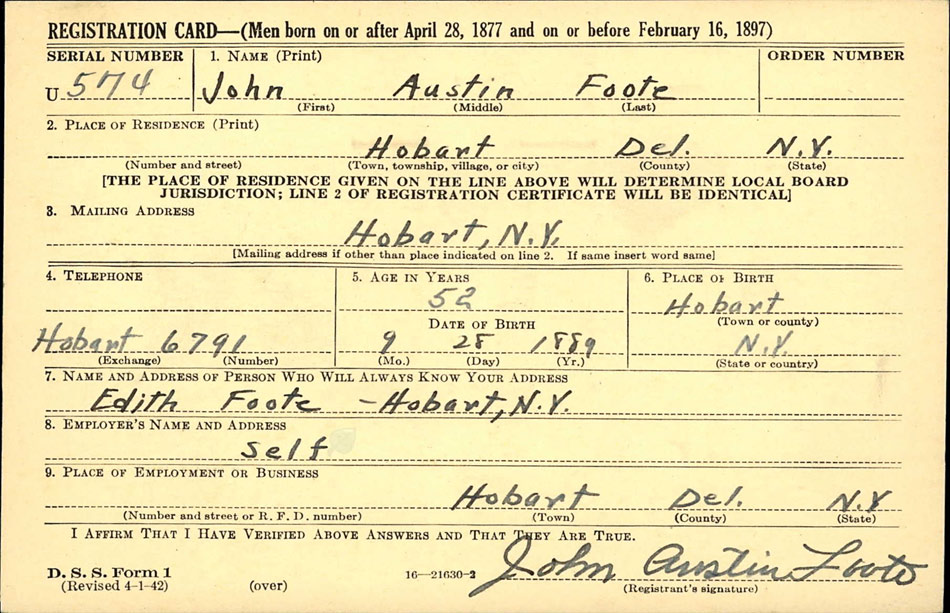 REGISTRATION CARD—(Men born on or after April 28, 1877 and on or before February 16, 1897)
SERIAL NUMBER 1. NAME (Print) ORDER NUMBER
U 574 John Austin Foote
(First) (Middle) (Last)
2. PLACE OF RESIDENCE (Print)
Hobart Del. N.Y.
(Number and street) (Town, township, village, or city) (County) (State)
[THE PLACE OF RESIDENCE GIVEN ON THE LINE ABOVE WILL DETERMINE LOCAL BOARD
JURISDICTION; LINE 2 OF REGISTRATION CERTIFICATE WILL BE IDENTICAL]
3. MAILING ADDRESS
Hobart, N.Y.
[Mailing address if other than place indicated on line 2. If same insert word same]
4. TELEPHONE 5. AGE IN YEARS 6. PLACE OF BIRTH
52 Hobart
DATE OF BIRTH (Town or county)
Hobart 6791 9 28 1889 N.Y.
(Exchange) (Number) (Mo.) (Day) (Yr.) (State or country)
7. NAME AND ADDRESS OF PERSON WHO WILL ALWAYS KNOW YOUR ADDRESS
Edith Foote - Hobart, N.Y.
8. EMPLOYER'S NAME AND ADDRESS
Self
9. PLACE OF EMPLOYMENT OR BUSINESS
Hobart Del. N.Y
(Number and street or R. F. D. number) (Town) (County) (State)
I AFFIRM THAT I HAVE VERIFIED ABOVE ANSWERS AND THAT THEY ARE TRUE.
John Austin Foote
D. S. S. Form 1
(Revised 4-1-42) (over) 16—21630-2 (Registrant's signature)